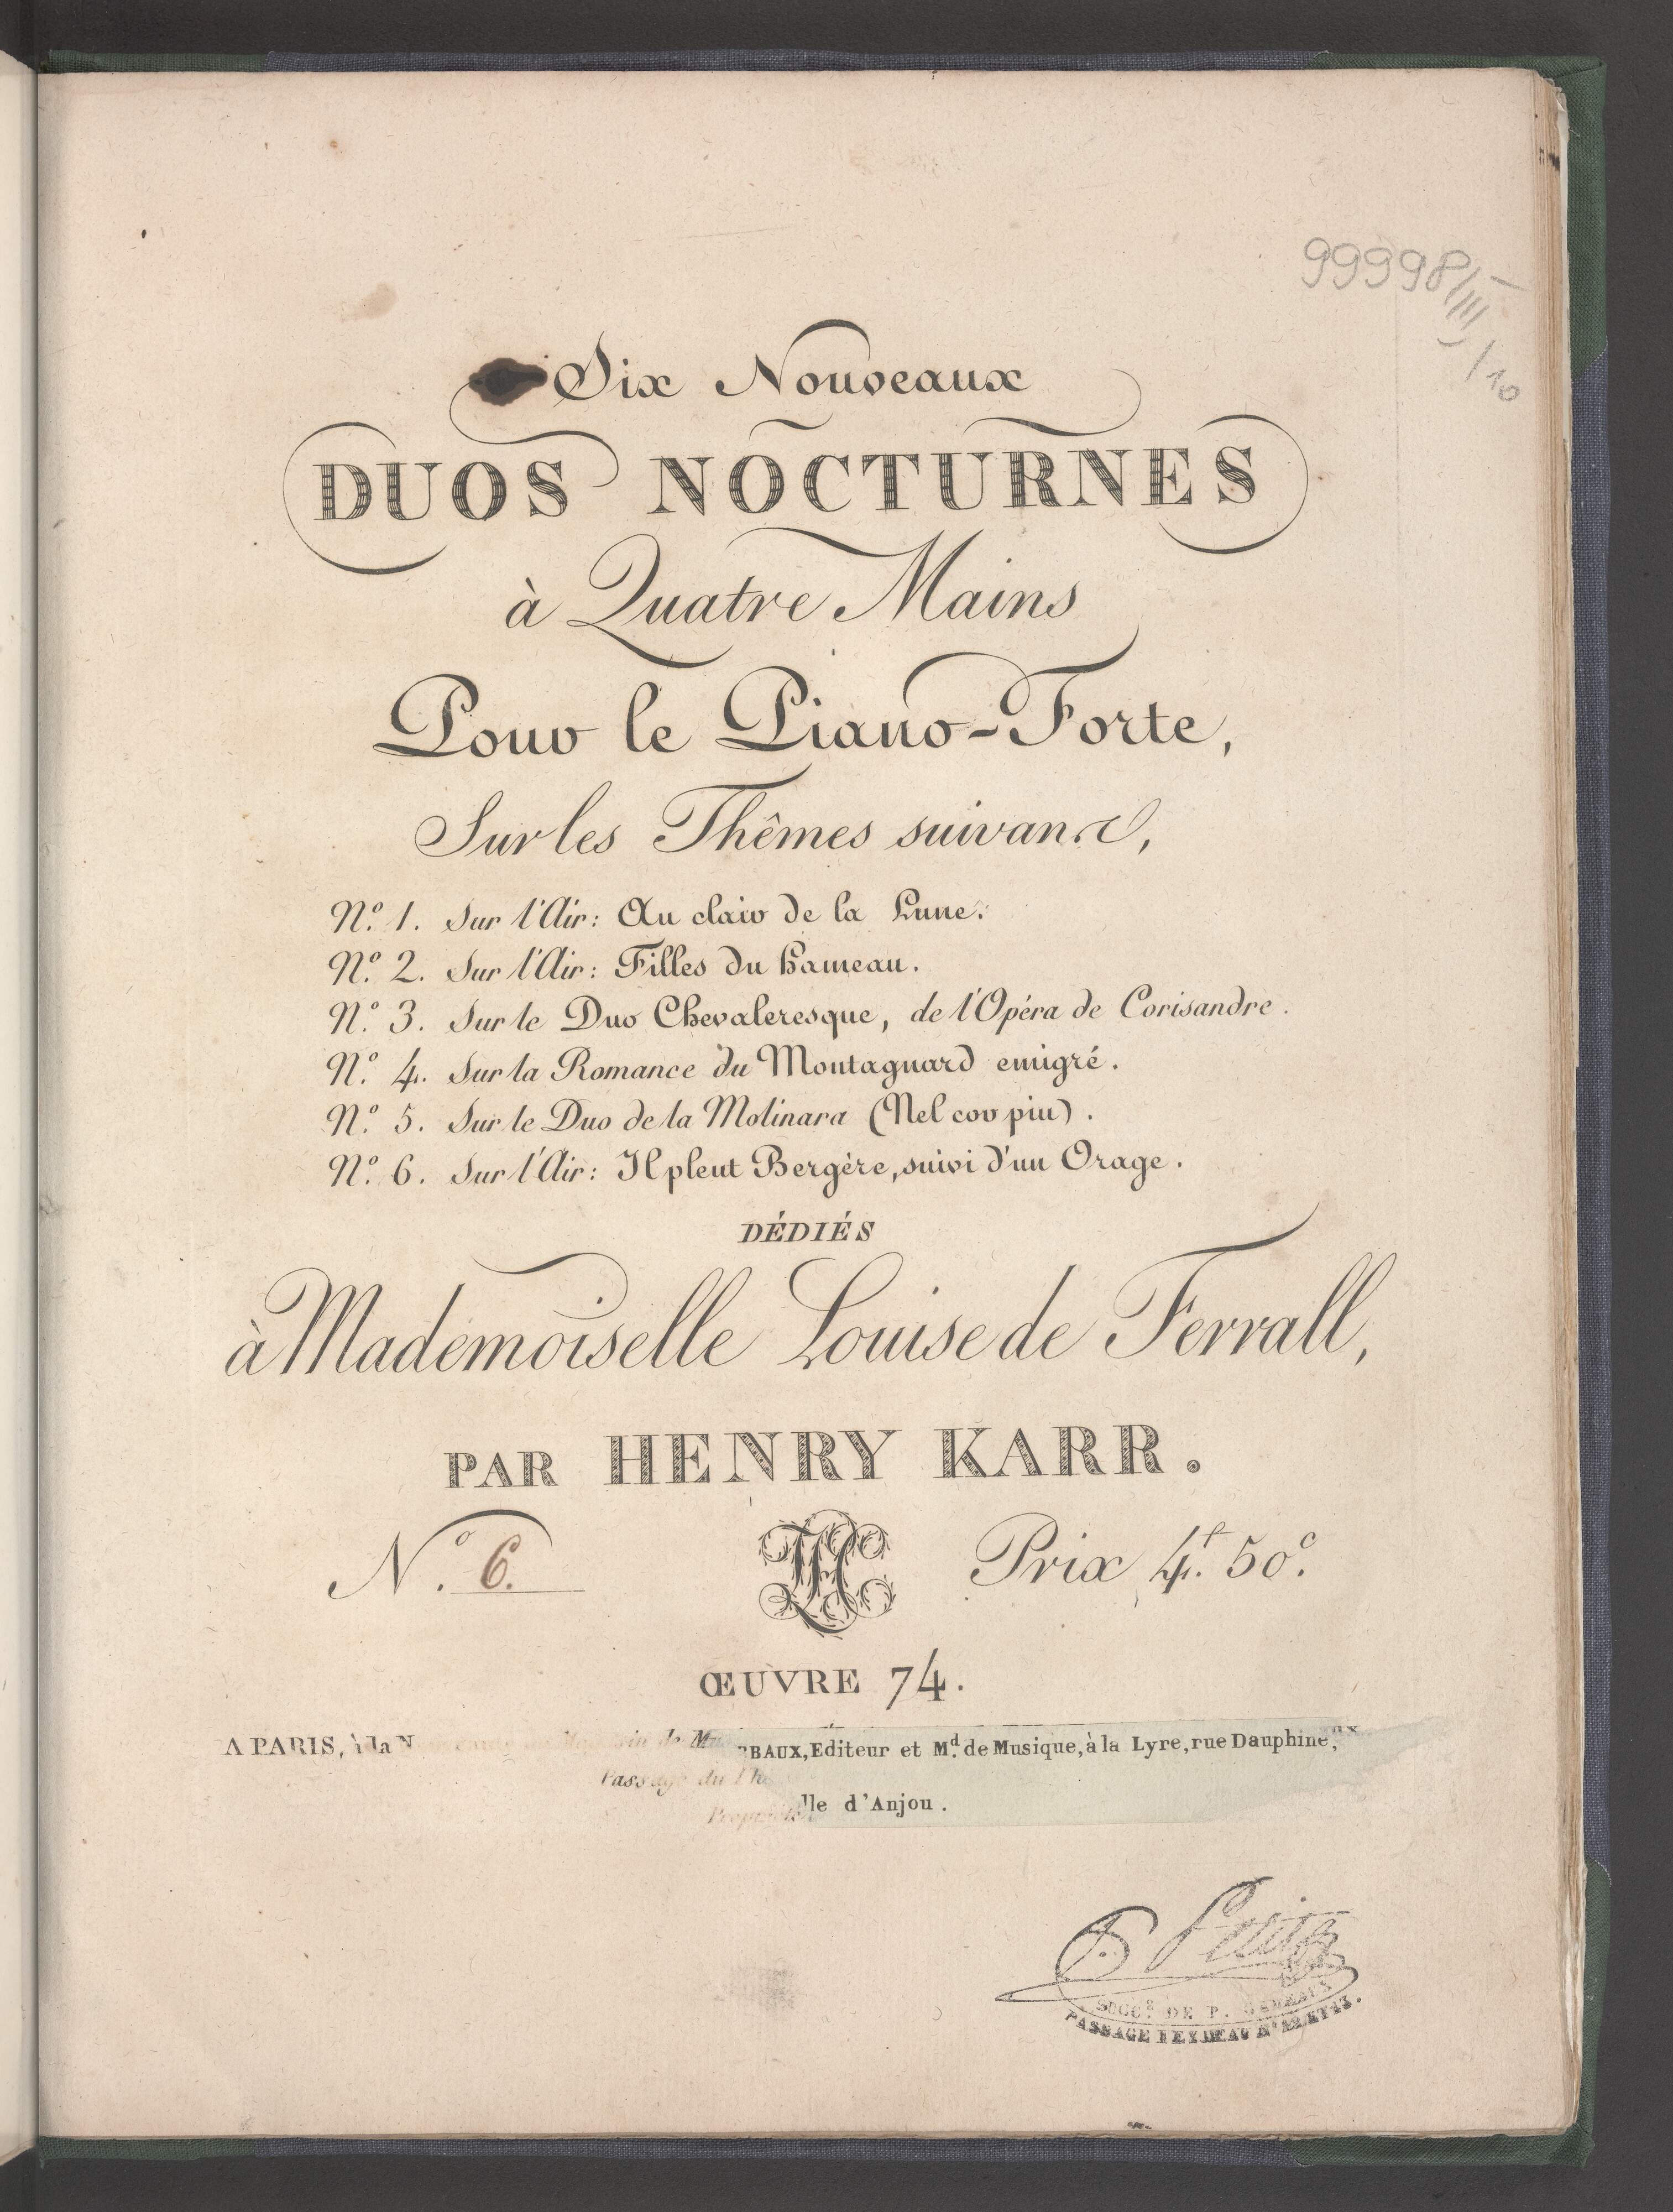 99998/III/10
Six Nouveaux
DUOS NOCTURNES
à Quatre Mains
Pour le Piano-Forte,
Sur les Thêmes suivans,
N.º 1. Sur l'Air: Au clair de la Lune.
N.º 2. Sur l'Air: Filles du hameau.
N.º 3. Sur le Duo Chevaleresque, de l'Opéra de Corisandre.
N.º 4. Sur la Romance du Montagnard emigré.
N.º 5. Sur le Duo de la Molinara (Nel cor piu).
N.º 6. Sur l'Air: Il pleut Bergère, suivi d'un Orage.
DÉDIÉS
à Mademoiselle Louise de Ferrall,
PAR HENRY KARR.
N.º 6. Prix 4.f 50.c
ŒUVRE 74.
A PARIS, à la N de Mu BAUX, Editeur et M.d de Musique, à la Lyre, rue Dauphine,
Passage du Th
lle d'Anjou.
P. Petit
SUCC.R DE P. GAVEAUX
PASSAGE FEYDEAU N.º 12 ET 13.